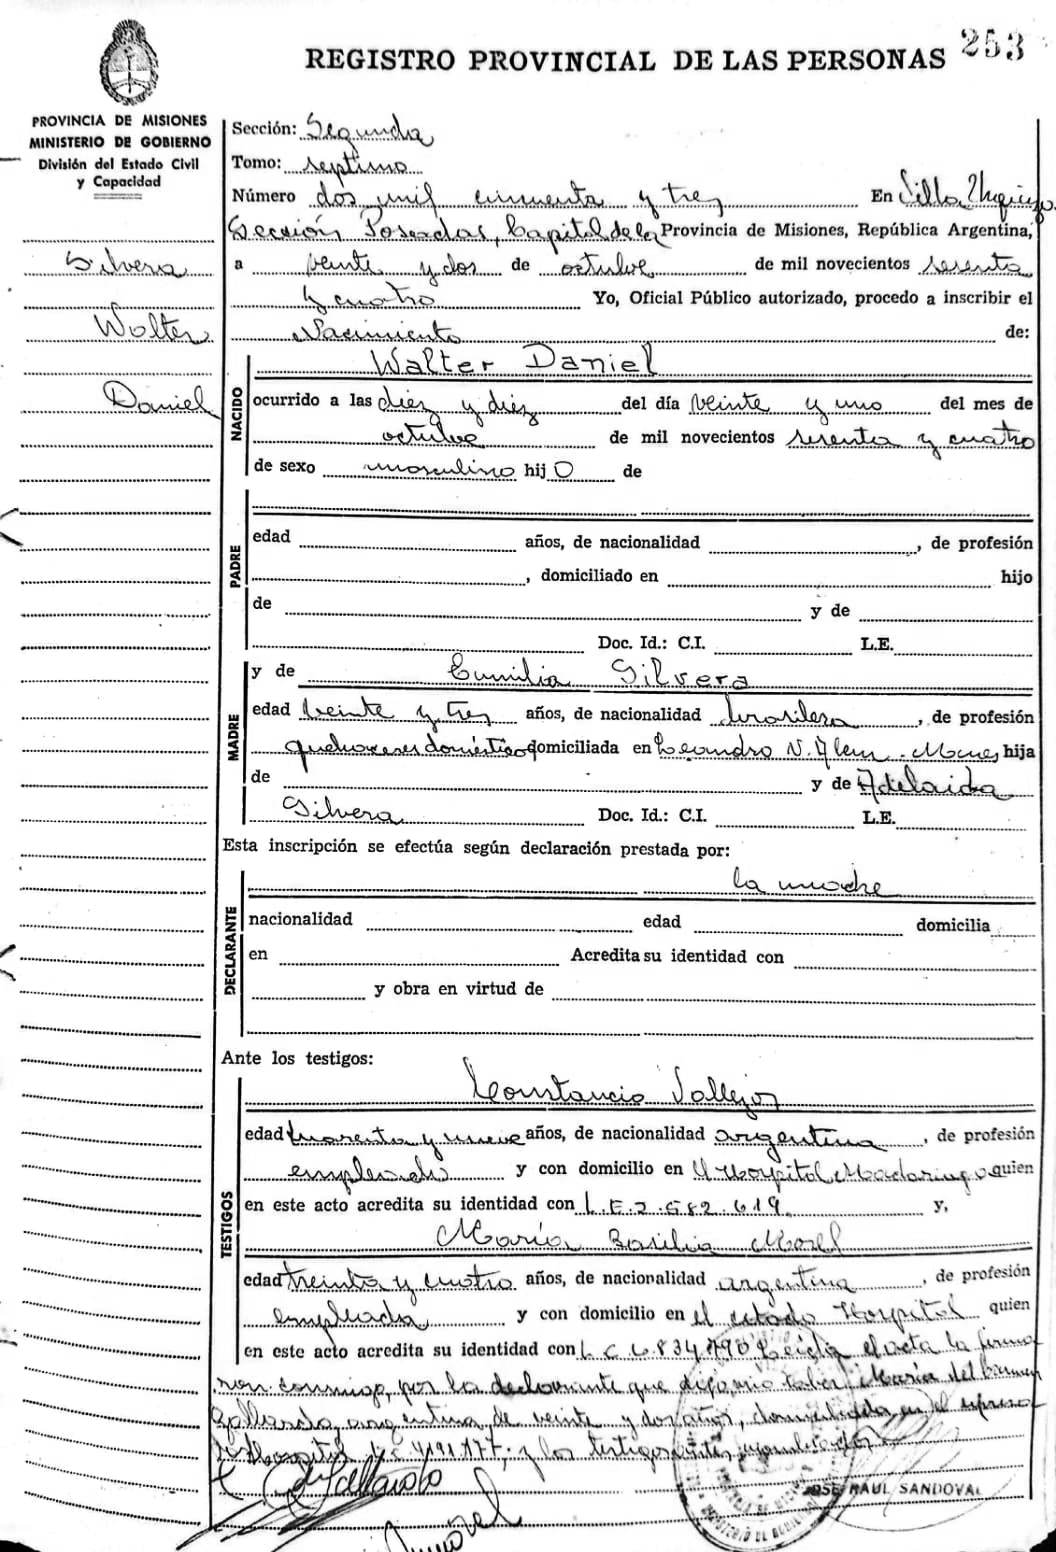 253
REGISTRO PROVINCIAL DE LAS PERSONAS
PROVINCIA DE MISIONES
MINISTERIO DE GOBIERNO
División del Estado Civil
y Capacidad
Silvera
Walter
Daniel
Sección: Segunda
Tomo: septimo
Número dos mil cincuenta y tres En Villa Urquiza
Sección Posadas, Capital de la Provincia de Misiones, República Argentina,
a veinte y dos de octubre de mil novecientos sesenta
y cuatro Yo, Oficial Público autorizado, procedo a inscribir el
Nacimiento de:
NACIDO
Walter Daniel
ocurrido a las diez y diez del día veinte y uno del mes de
octubre de mil novecientos sesenta y cuatro
de sexo masculino hijo de
PADRE
edad años, de nacionalidad , de profesión
, domiciliado en hijo
de y de
Doc. Id.: C.I. L.E.
MADRE
y de Emilia Silvera
edad veinte y tres años, de nacionalidad brasilera , de profesión
quehaceres domésticos domiciliada en Leandro N. Alem - Mnes hija
de y de Adelaida
Silvera Doc. Id.: C.I. L.E.
Esta inscripción se efectúa según declaración prestada por:
DECLARANTE
la madre
nacionalidad edad domicilia
en Acredita su identidad con
y obra en virtud de
Ante los testigos:
TESTIGOS
Constancio Vallejos
edad cuarenta y nueve años, de nacionalidad argentina , de profesión
empleado y con domicilio en Hospital Madariaga quien
en este acto acredita su identidad con L.E. 2.582.619 y,
María Basilia Morel
edad treinta y cuatro años, de nacionalidad argentina , de profesión
empleada y con domicilio en el citado Hospital quien
en este acto acredita su identidad con L C 6.834.790 Leída el acta la firma
ron conmigo, por la declarante que dijo no saber María del Carmen
Gallardo, argentina de veinte y dos años, domiciliada en el expresa
do Hospital L.C. 4191177; y los testigos antes
Gallardo
Morel
JOSE RAUL SANDOVAL